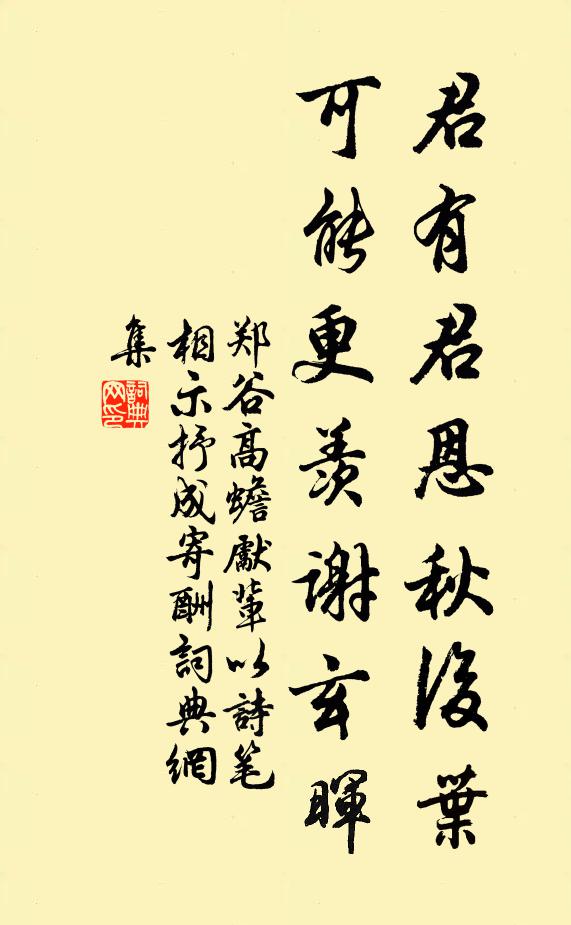 君有君恩秋後葉
可能更羨謝玄暉
郑谷高蟾獻輩以詩笔
相示抒成寄酬詞典網
集
詞典網印